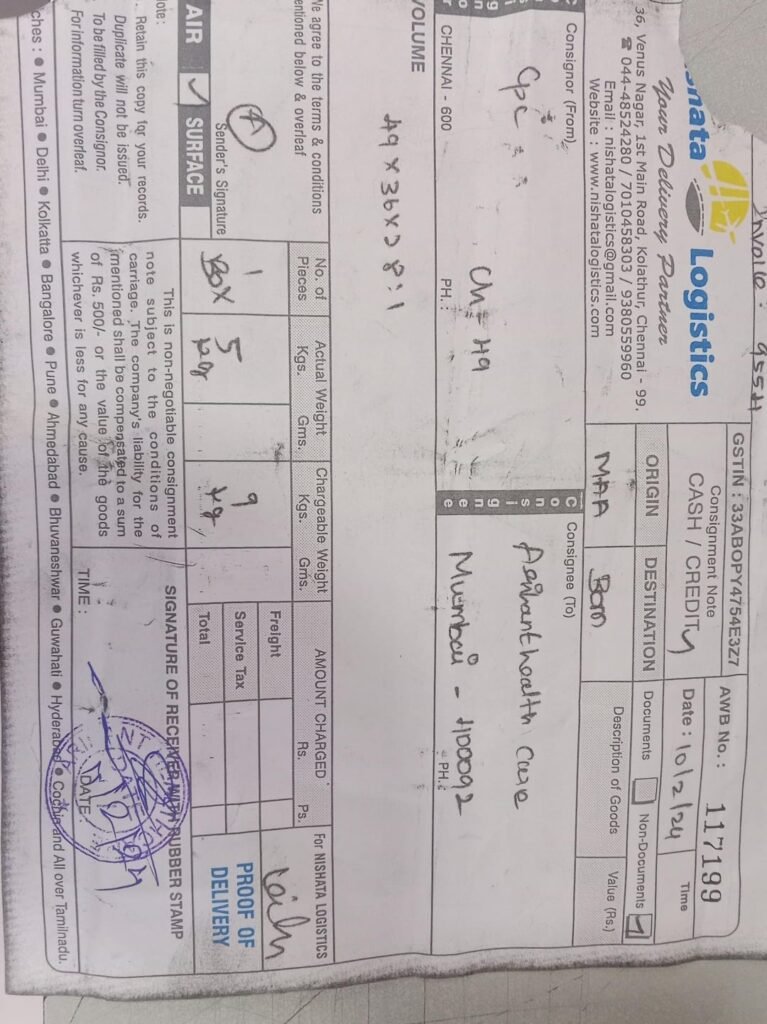 Invoice : 9554
Logistics
Your Delivery Partner
36, Venus Nagar, 1st Main Road, Kolathur, Chennai - 99.
☎ 044-48524280 / 7010458303 / 9380559960
Email : nishatalogistics@gmail.com
Website : www.nishatalogistics.com
GSTIN : 33ABOPY4754E3Z7
Consignment Note
CASH / CREDIT
AWB No. : 117199
Date : 10/2/24
Time
ORIGIN
DESTINATION
MAA
Bom
Documents
Non-Documents
Description of Goods
Value (Rs.)
Consignor (From)
Cpc
Ch - 49
CHENNAI - 600
PH. :
Consignee (To)
health care
Mumbai - 400092
PH.
VOLUME
49 x 36 x 28 : 1
We agree to the terms & conditions
mentioned below & overleaf
Sender's Signature
AIR
SURFACE
No. of Pieces
1 Box
Actual Weight
Kgs. Gms.
5 kg
Chargeable Weight
Kgs. Gms.
9 kg
AMOUNT CHARGED
Rs. Ps.
Freight
Service Tax
Total
For NISHATA LOGISTICS
PROOF OF
DELIVERY
Note :
Retain this copy for your records.
Duplicate will not be issued.
To be filled by the Consignor.
For information turn overleaf.
This is non-negotiable consignment
note subject to the conditions of
carriage. The company's liability for the
mentioned shall be compensated to a sum
of Rs. 500/- or the value of the goods
whichever is less for any cause.
SIGNATURE OF RECEIVER WITH RUBBER STAMP
TIME :
DATE
ches : ● Mumbai ● Delhi ● Kolkatta ● Bangalore ● Pune ● Ahmedabad ● Bhuvaneshwar ● Guwahati ● Hyderabad ● Cochin and All over Tamilnadu.